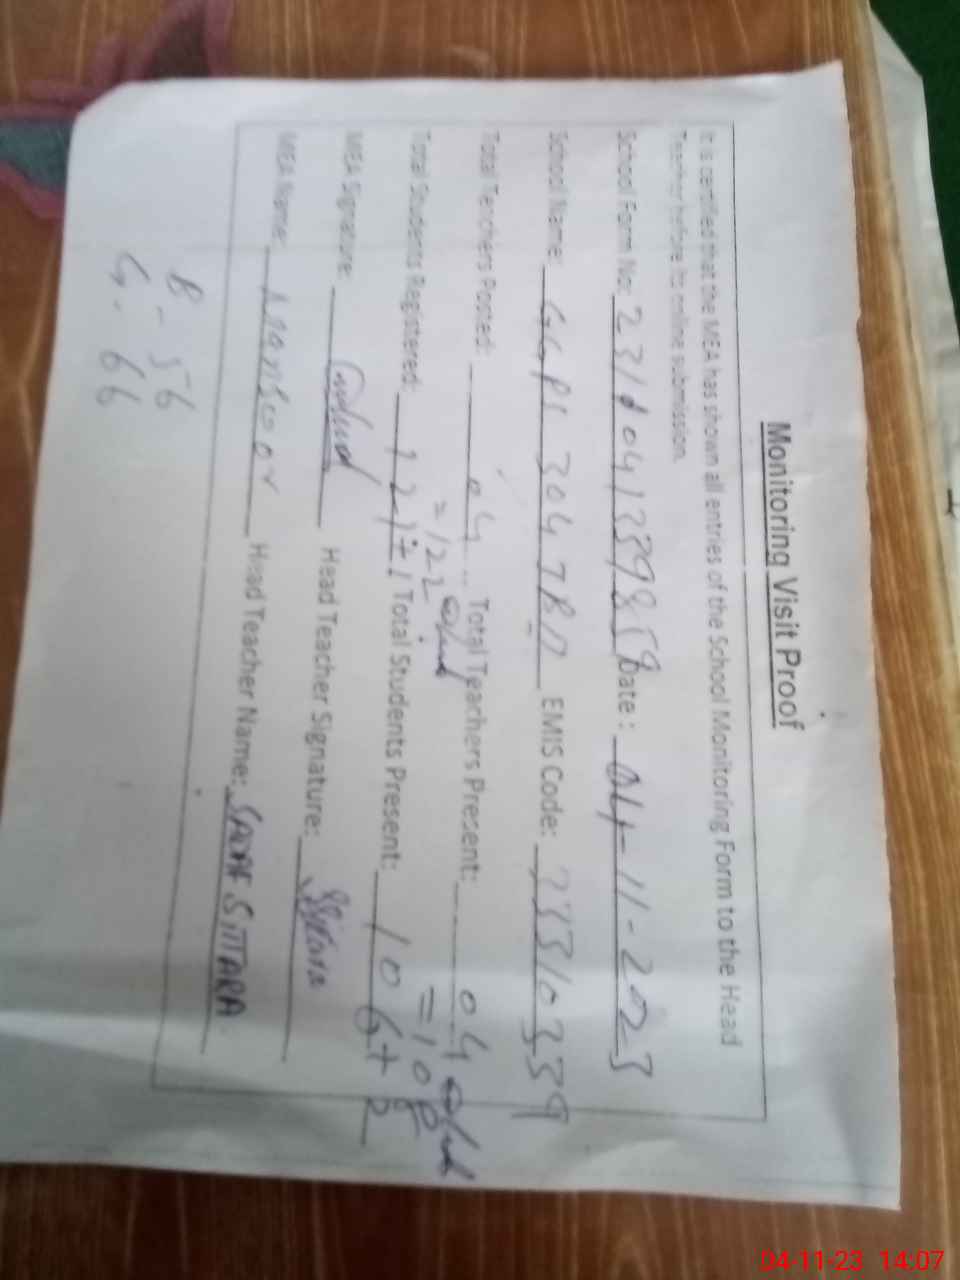 Monitoring Visit Proof
It is certified that the MEA has shown all entries of the School Monitoring Form to the Head
Teacher before its online submission.
School Form No: Date: 04-11-2023
School Name: GGPS 304 TBA EMIS Code: 33310339
Total Teachers Posted: 04 Total Teachers Present: 04
= 122 = 108
Total Students Registered: 121 + 1 Total Students Present: 106 + 2
MEA Signature: Head Teacher Signature:
MEA Name: Head Teacher Name: SADAF SITTARA
B - 56
G - 66
04-11-23 14:07